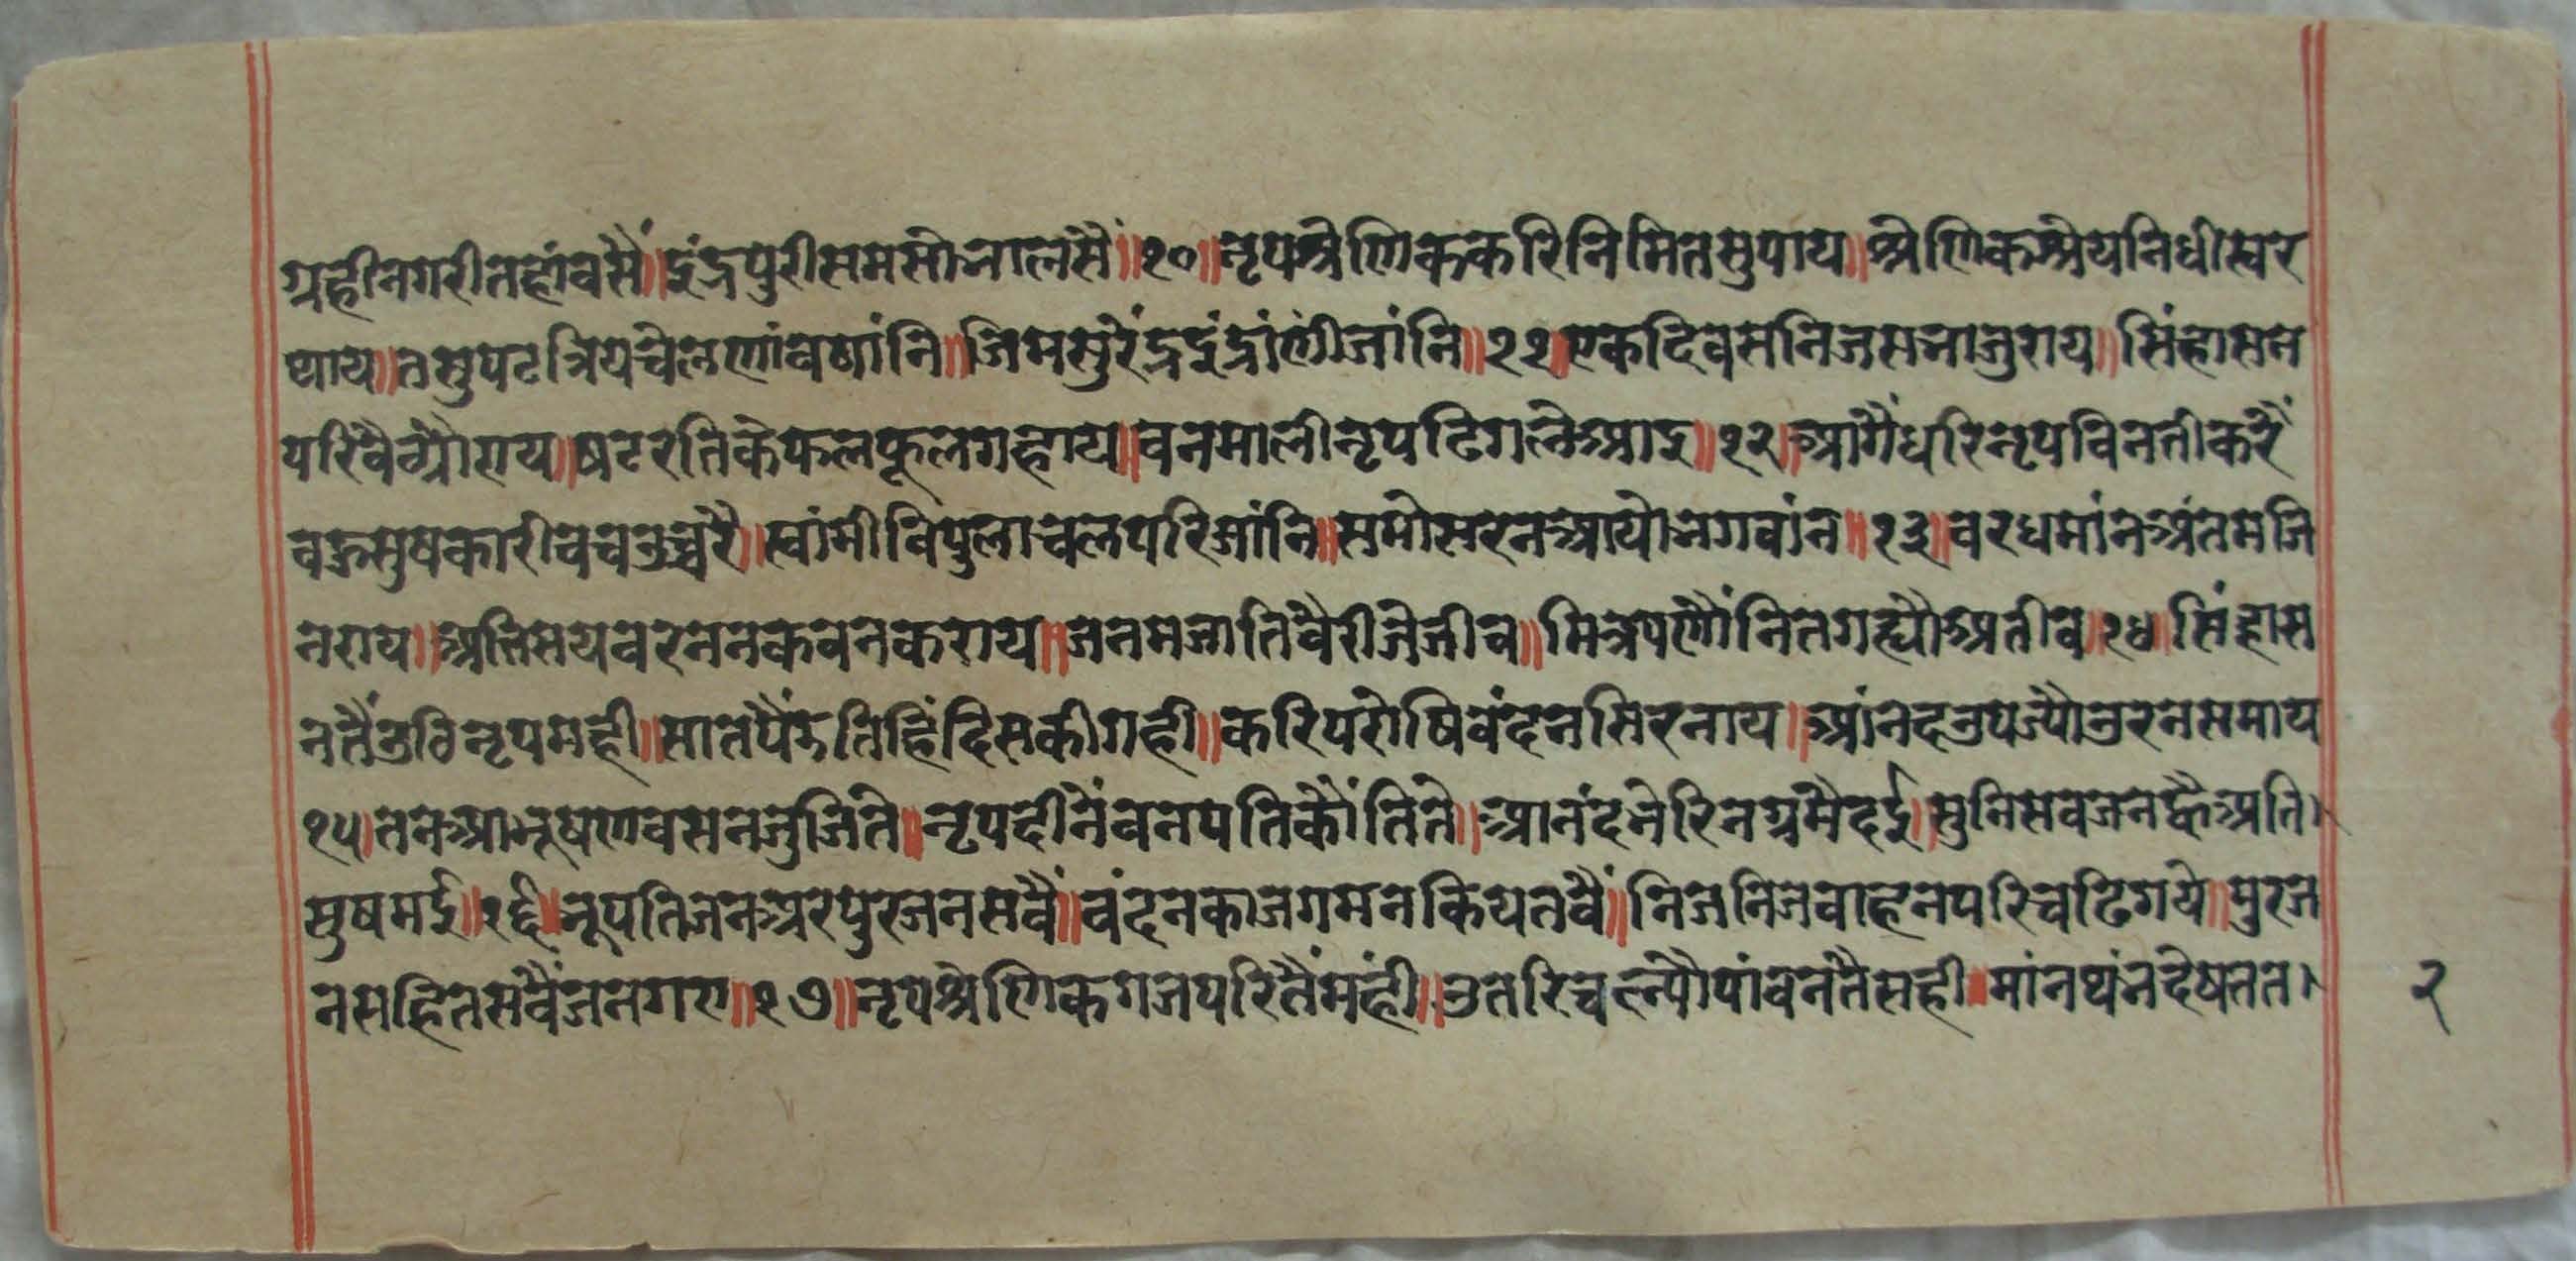 ग्रहीनगरीतहांवसैं॥इंद्रपुरीसमसोभालसैं॥१०॥नृपश्रेणिककरिनिमितसुपाय॥श्रेणिकश्रेयनिधीस्वरे
थाय॥तसुपटत्रियचेलणांवषांनि॥जिमसुरेंद्रइंद्रांणीजांनि॥११॥एकदिवसनिजसभाजुराय॥सिंहासन
परिवैठ्यौराय॥षटरतिकेफलफूलगहाय॥वनमालीनृपढिगलैआइ॥१२॥आगैंधरिनृपविनतीकरैं
वहुसुषकारीवचउच्चरै॥स्वांमीविपुलाचलपरिजांनि॥समोसरनआयोभगवांन॥१३॥वरधमांनअंतमजि
नराय॥अतिसयवरननकवनकराय॥जनमजातिवैरीजेजीव॥मित्रपणौंनितगह्यौअतीव॥१४॥सिंहास
नतैंउठिनृपमही॥सातपैंडतिहिंदिसकीगही॥करिपरोषिवंदनसिरनाय॥आंनदउपज्यौउरनसमाय
१५॥तनआभूषणवसनजुजिते॥नृपदीनैंवनपतिकौंतिते॥आनंदभेरिनग्रमैदई॥सुनिसवजनह्वैअति।
सुषमई॥१६॥भूपतिजनअरपुरजनसवैं॥वंदनकाजगमनकियतवैं॥निजनिजवाहनपरिचढिगये॥पुरज
नसहितसवैंजनगए॥१७॥नृपश्रेणिकगजपरितैंमंहीं॥उतरिचल्यौपांवनतैसही॥मांनथंनदेषतत।
२